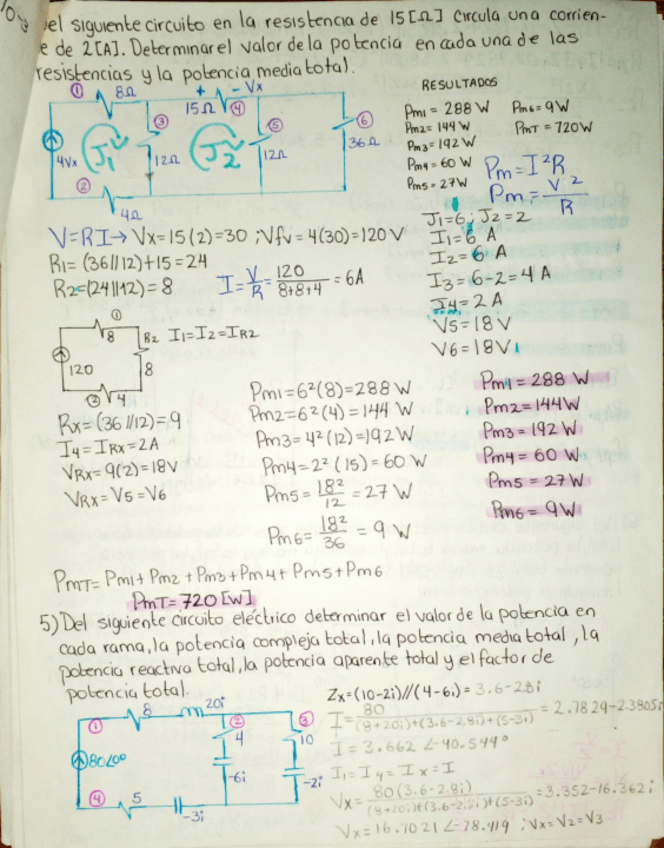 Del siguiente circuito en la resistencia de 15[Ω] circula una corrien-
e de 2[A]. Determinar el valor de la potencia en cada una de las
resistencias y la potencia media total.
RESULTADOS
① 8Ω
+ - Vx
15Ω ④
③ ⑤ ⑥
4Vx J1 12Ω J2 12Ω 36Ω
②
4Ω
Pm1 = 288 W Pm6 = 9W
Pm2 = 144 W PmT = 720W
Pm3 = 192W
Pm4 = 60 W
Pm5 = 27W
Pm = I²R
Pm = V²/R
V=RI→ Vx=15(2)=30 ; Vfv = 4(30)=120V
R1= (36//12)+15 = 24
R2=(24//12)=8
I = V/R = 120/(8+8+4) = 6A
J1=6 ; J2=2
I1=6 A
I2=6 A
I3=6-2=4 A
I4=2 A
V5=18V
V6=18V
①
8 R2 I1=I2=IR2
120 8
② 4
Rx=(36//12)=9
I4=IRx=2A
VRx=9(2)=18V
VRx=V5=V6
Pm1=6²(8)=288 W
Pm2=6²(4)=144 W
Pm3=4²(12)=192 W
Pm4=2²(15)=60 W
Pm5=18²/12=27 W
Pm6=18²/36=9 W
Pm1 = 288 W
Pm2=144W
Pm3 = 192 W
Pm4 = 60 W
Pm5 = 27W
Pm6 = 9W
PmT= Pm1+Pm2+Pm3+Pm4+Pm5+Pm6
PmT= 720 [W]
5) Del siguiente circuito eléctrico determinar el valor de la potencia en
cada rama, la potencia compleja total, la potencia media total, la
potencia reactiva total, la potencia aparente total y el factor de
potencia total.
① 8 20i ② ③
4 10
80∠0°
-6i -2i
④ 5 -3i
Zx=(10-2i)//(4-6i)=3.6-2.8i
I = 80/((8+20i)+(3.6-2.8i)+(5-3i)) = 2.7829-2.3805i
I = 3.662 ∠-40.544°
I1=I4=Ix=I
Vx = 80(3.6-2.8i)/((8+20i)+(3.6-2.8i)+(5-3i)) = 3.352-16.362i
Vx=16.7021∠-78.419 ; Vx=V2=V3